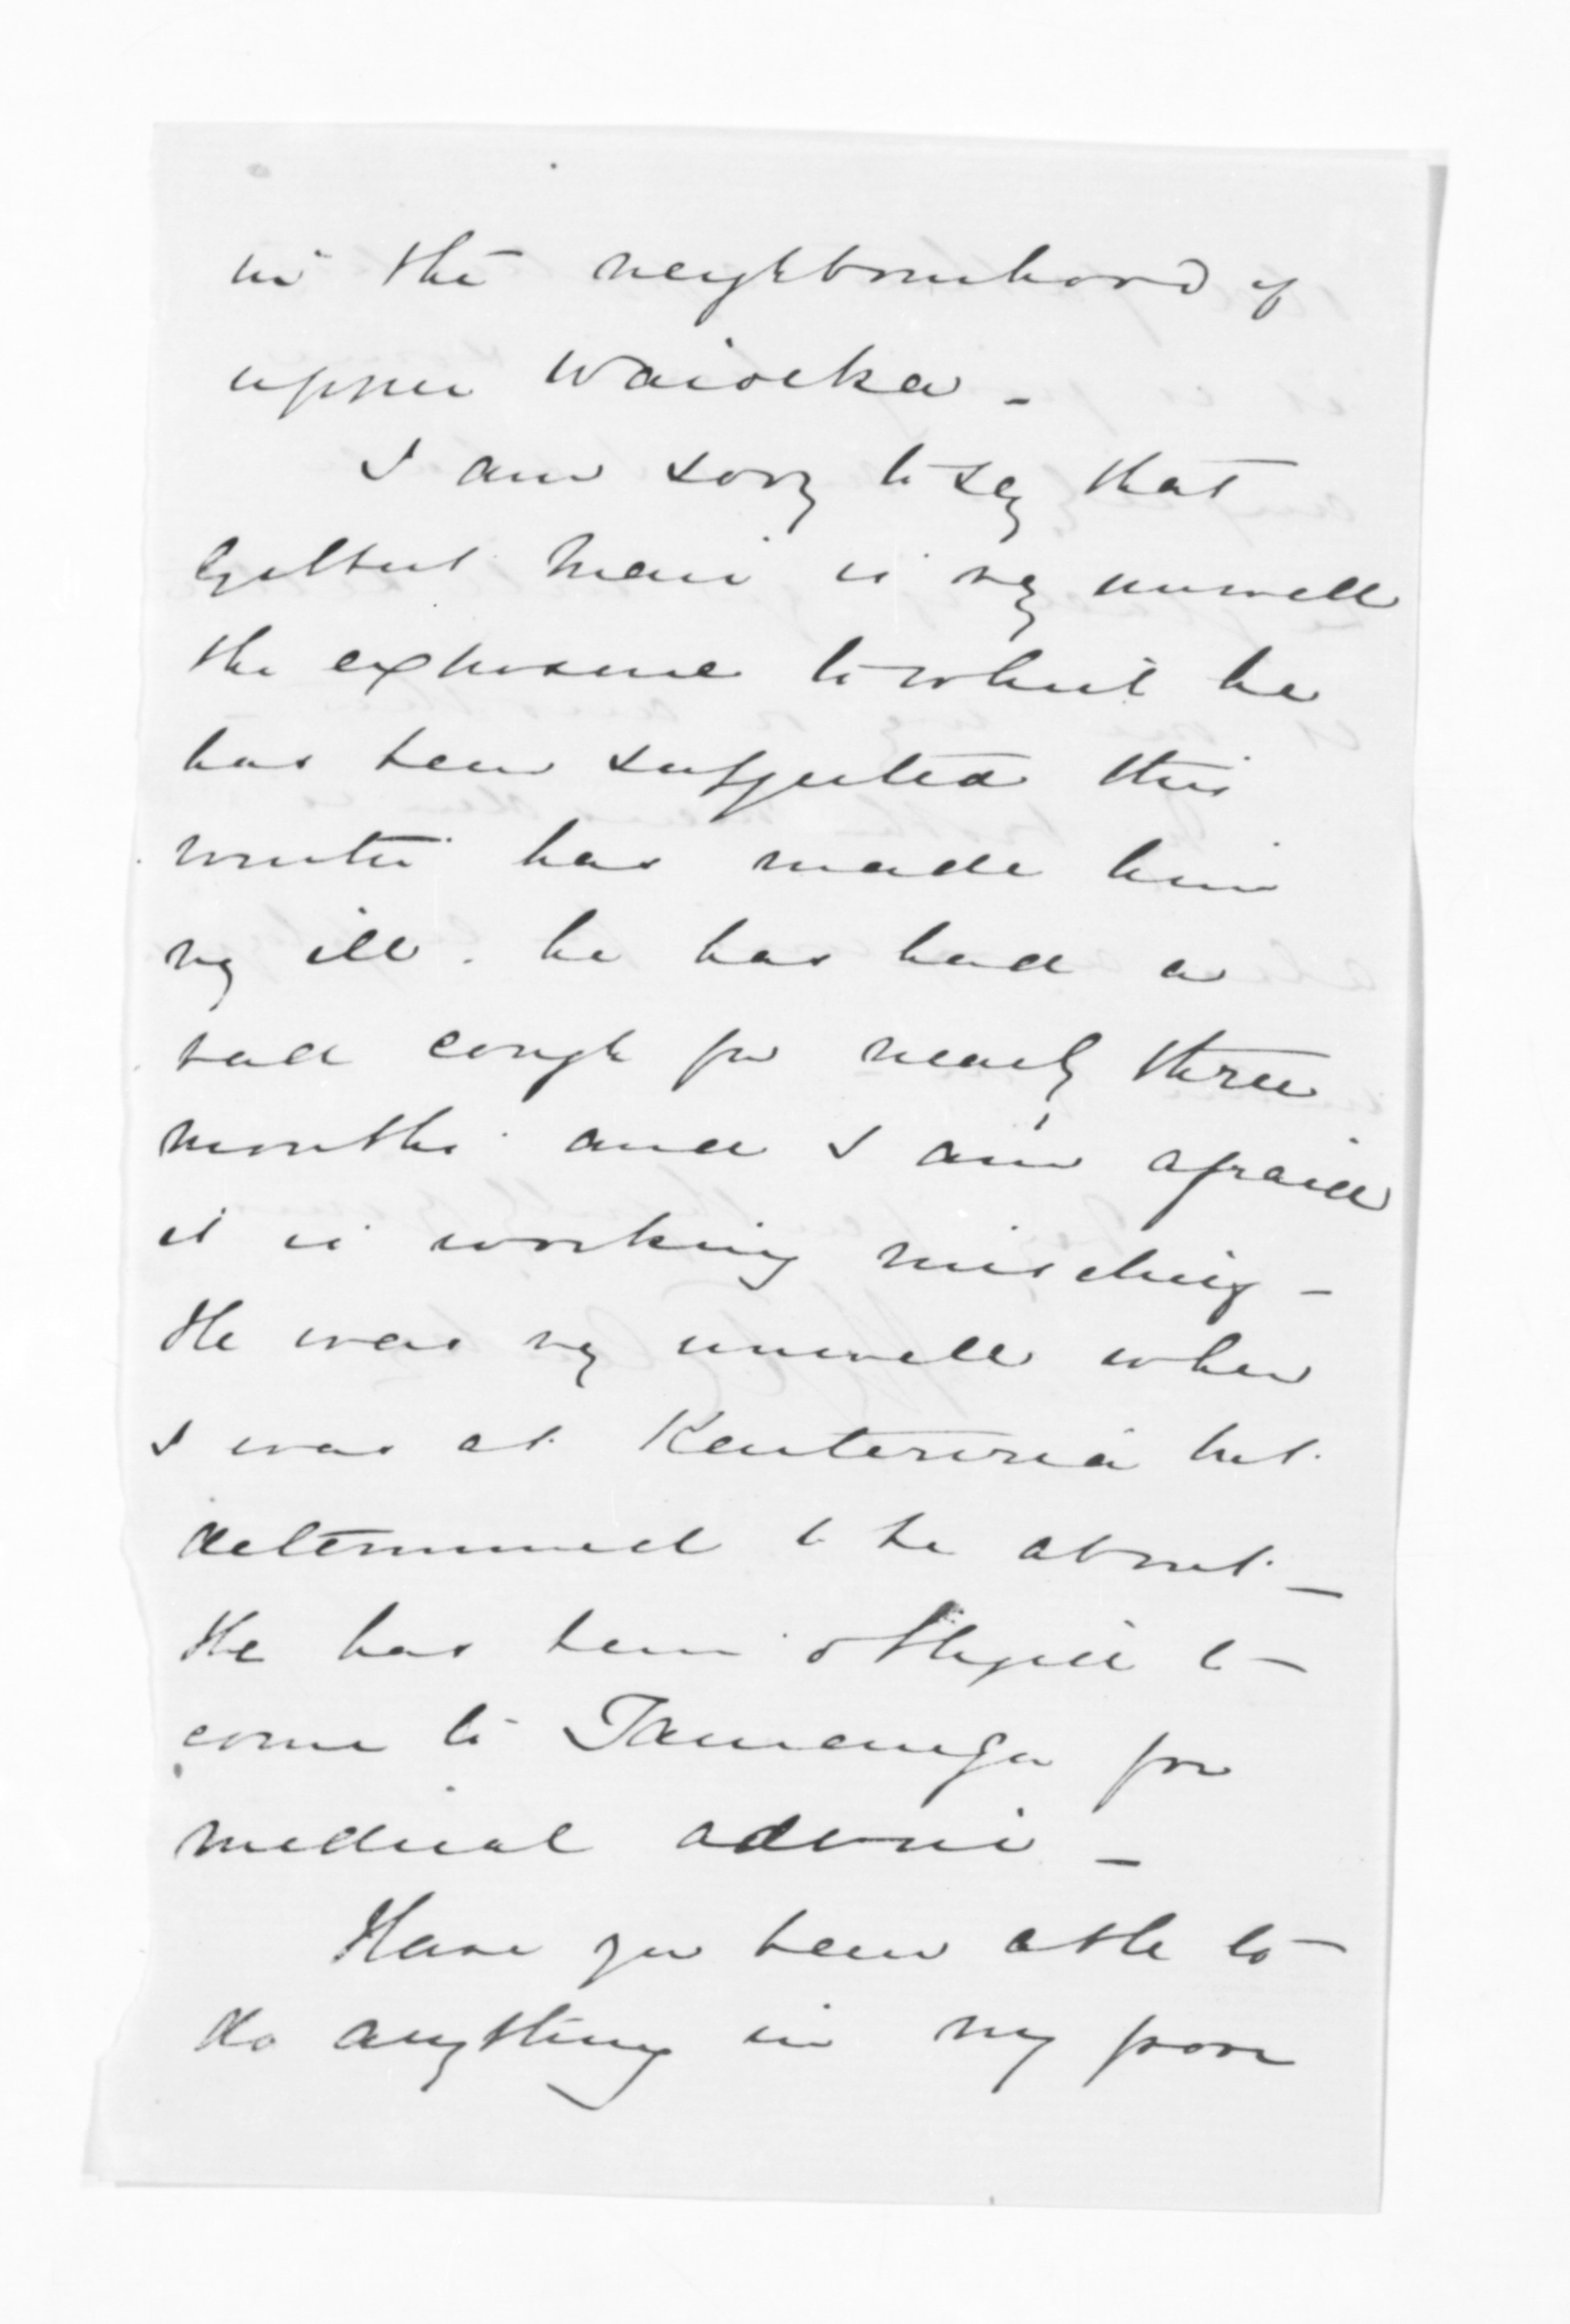 in the neighbourhood of
upper Waioeka _
I am sorry to say that
Gilbert Mair is very unwell
the exposure to which he
has been subjected this
winter has made him
very ill. he has had a
bad cough for nearly three
months and I am afraid
it is working mischief _
He was very unwell when
I was at Kauteriria but
determined to be about _
He has been obliged to
come to Tauranga for
medical advice _
Have you been able to
do anything in my poor